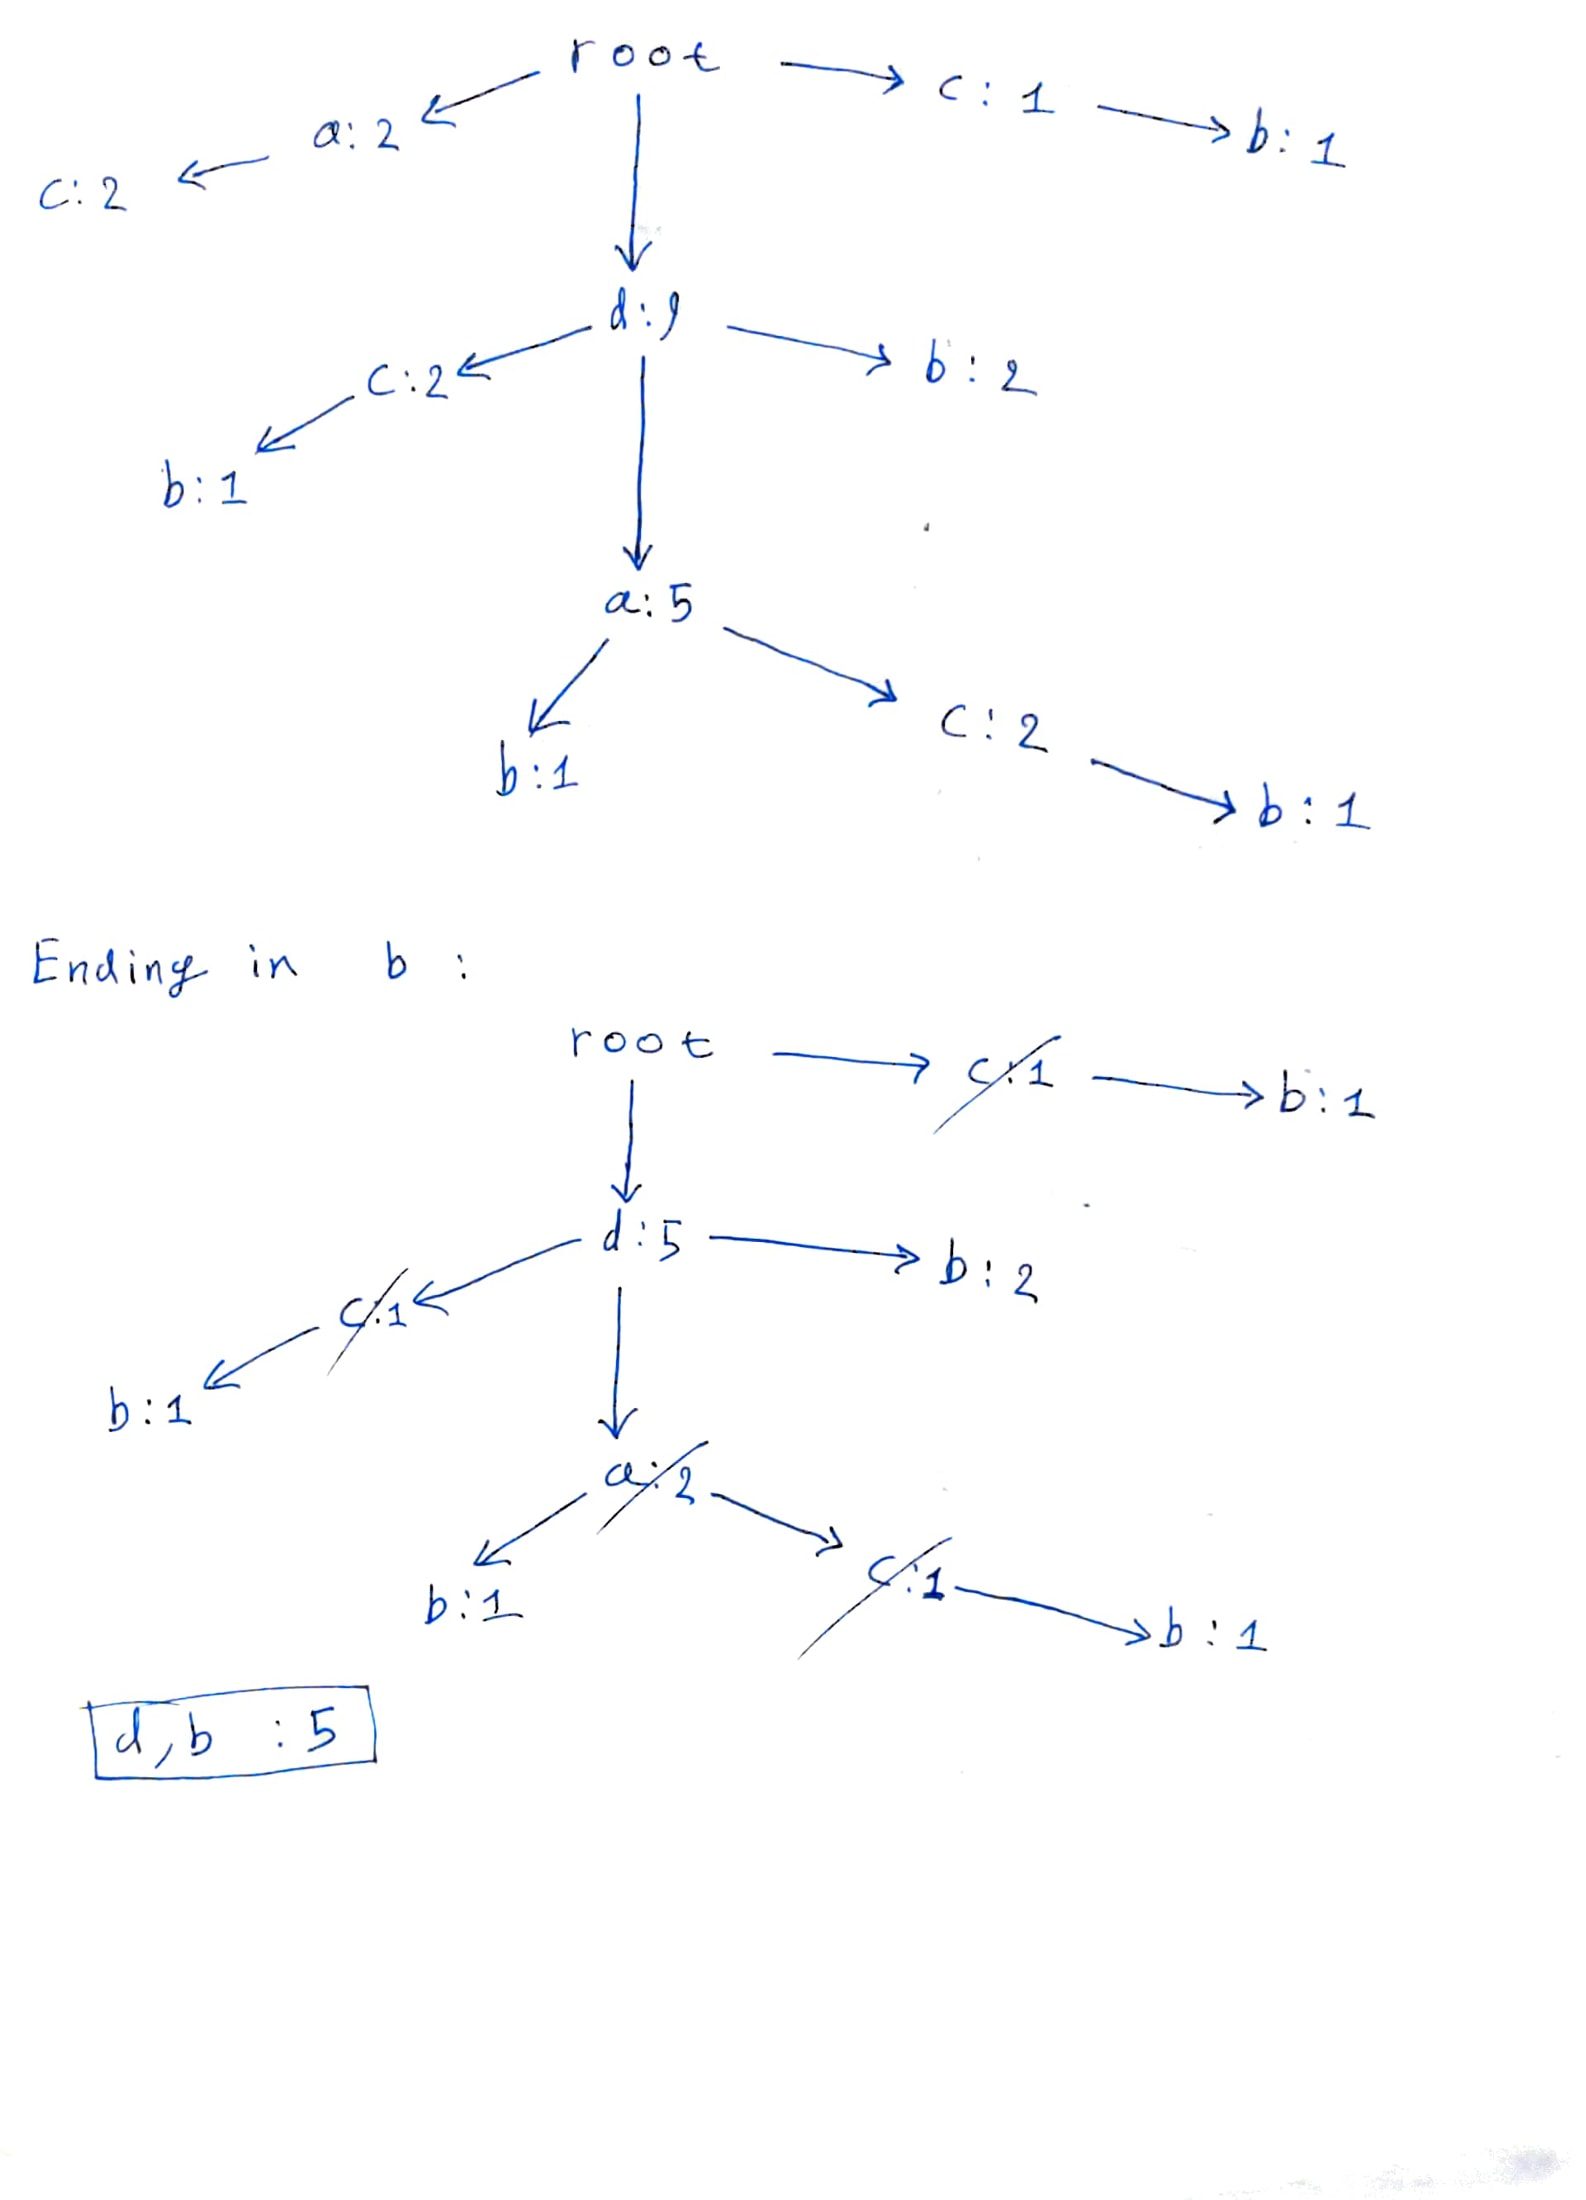 root
c: 1
a: 2
b: 1
c: 2
d: 9
b: 2
c: 2
b: 1
a: 5
c: 2
b: 1
b: 1
Ending in b :
root
c: 1
b: 1
d: 5
b: 2
c: 1
b: 1
a: 2
c: 1
b: 1
b: 1
d, b : 5